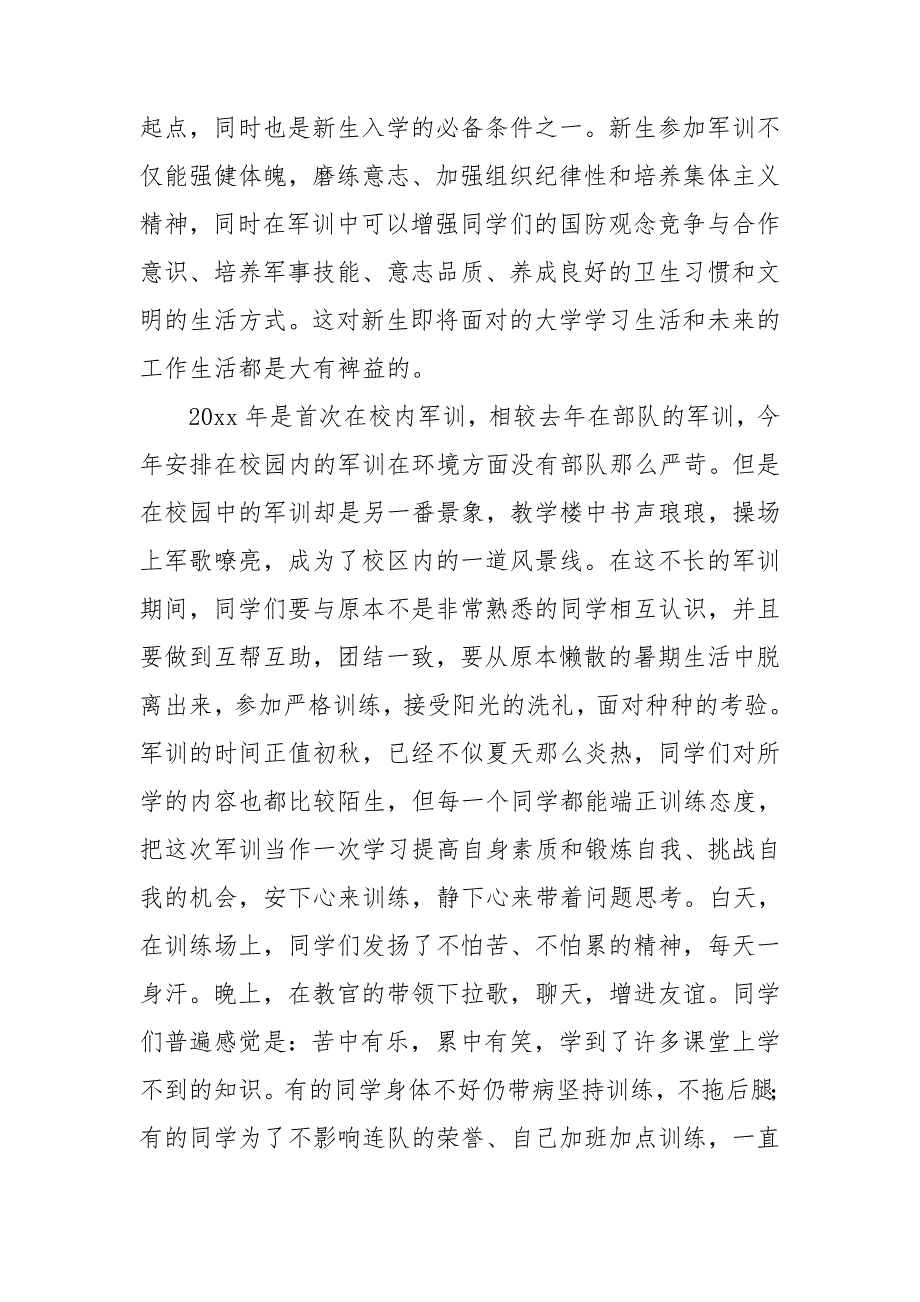 起点，同时也是新生入学的必备条件之一。新生参加军训不
仅能强健体魄，磨练意志、加强组织纪律性和培养集体主义
精神，同时在军训中可以增强同学们的国防观念竞争与合作
意识、培养军事技能、意志品质、养成良好的卫生习惯和文
明的生活方式。这对新生即将面对的大学学习生活和未来的
工作生活都是大有裨益的。
20xx 年是首次在校内军训，相较去年在部队的军训，今
年安排在校园内的军训在环境方面没有部队那么严苛。但是
在校园中的军训却是另一番景象，教学楼中书声琅琅，操场
上军歌嘹亮，成为了校区内的一道风景线。在这不长的军训
期间，同学们要与原本不是非常熟悉的同学相互认识，并且
要做到互帮互助，团结一致，要从原本懒散的暑期生活中脱
离出来，参加严格训练，接受阳光的洗礼，面对种种的考验。
军训的时间正值初秋，已经不似夏天那么炎热，同学们对所
学的内容也都比较陌生，但每一个同学都能端正训练态度，
把这次军训当作一次学习提高自身素质和锻炼自我、挑战自
我的机会，安下心来训练，静下心来带着问题思考。白天，
在训练场上，同学们发扬了不怕苦、不怕累的精神，每天一
身汗。晚上，在教官的带领下拉歌，聊天，增进友谊。同学
们普遍感觉是：苦中有乐，累中有笑，学到了许多课堂上学
不到的知识。有的同学身体不好仍带病坚持训练，不拖后腿；
有的同学为了不影响连队的荣誉、自己加班加点训练，一直